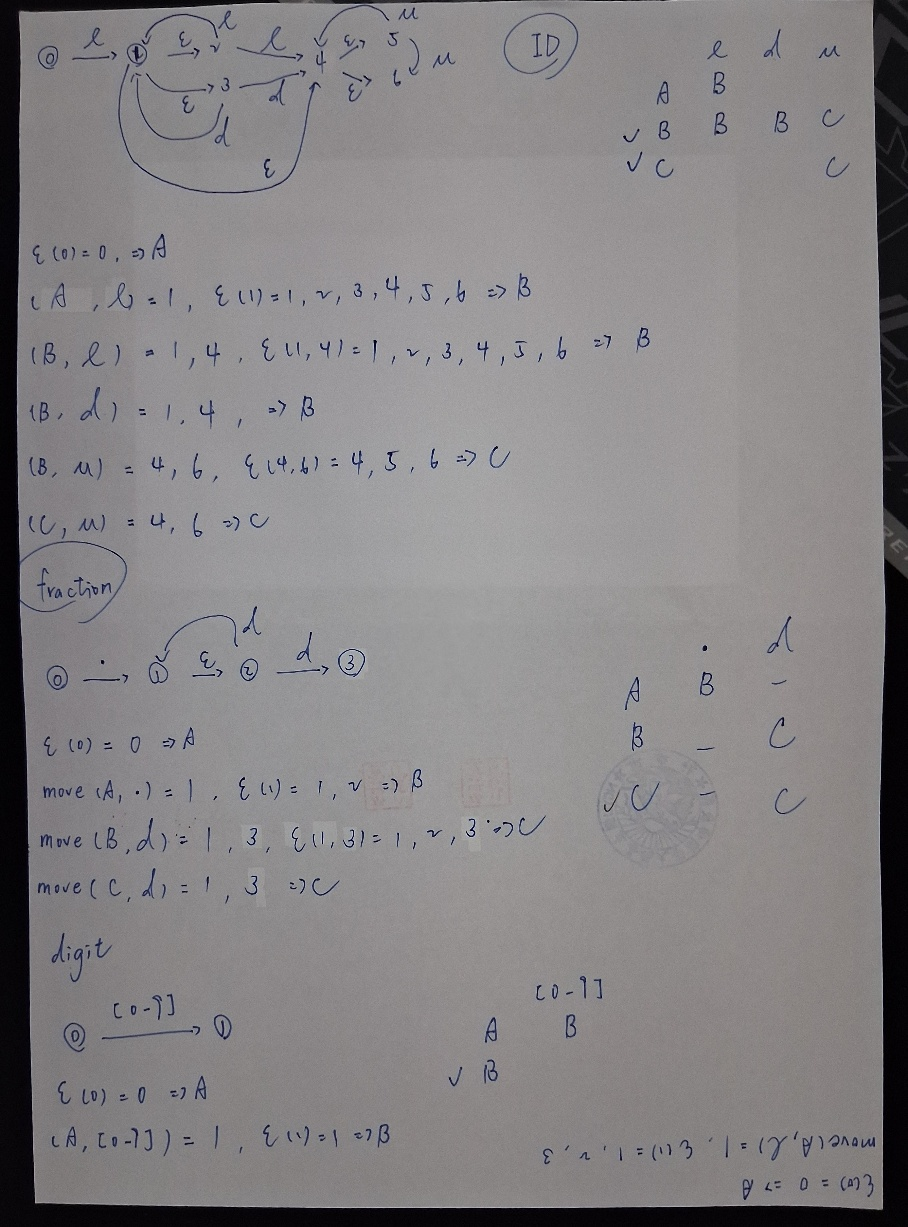 0 l 1 ε 2 l l 4 ε 5 u u
ε 3 d ε 6
d
ε
ID
l d u
A B
✓ B B B C
✓ C C
ε(0) = 0, => A
(A, l) = 1, ε(1) = 1, 2, 3, 4, 5, 6 => B
(B, l) = 1, 4, ε(1,4) = 1, 2, 3, 4, 5, 6 => B
(B, d) = 1, 4, => B
(B, u) = 4, 6, ε(4,6) = 4, 5, 6 => C
(C, u) = 4, 6 => C
fraction
0 . 1 ε 2 d 3
d
. d
A B -
B - C
✓ C - C
ε(0) = 0 => A
move (A, .) = 1, ε(1) = 1, 2 => B
move (B, d) = 1, 3, ε(1,3) = 1, 2, 3 => C
move (C, d) = 1, 3 => C
digit
0 [0-9] 1
[0-9]
A B
✓ B
ε(0) = 0 => A
(A, [0-9]) = 1, ε(1) = 1 => B
ε(0) = 0 => A
move(A, l) = 1, ε(1) = 1, 2, 3